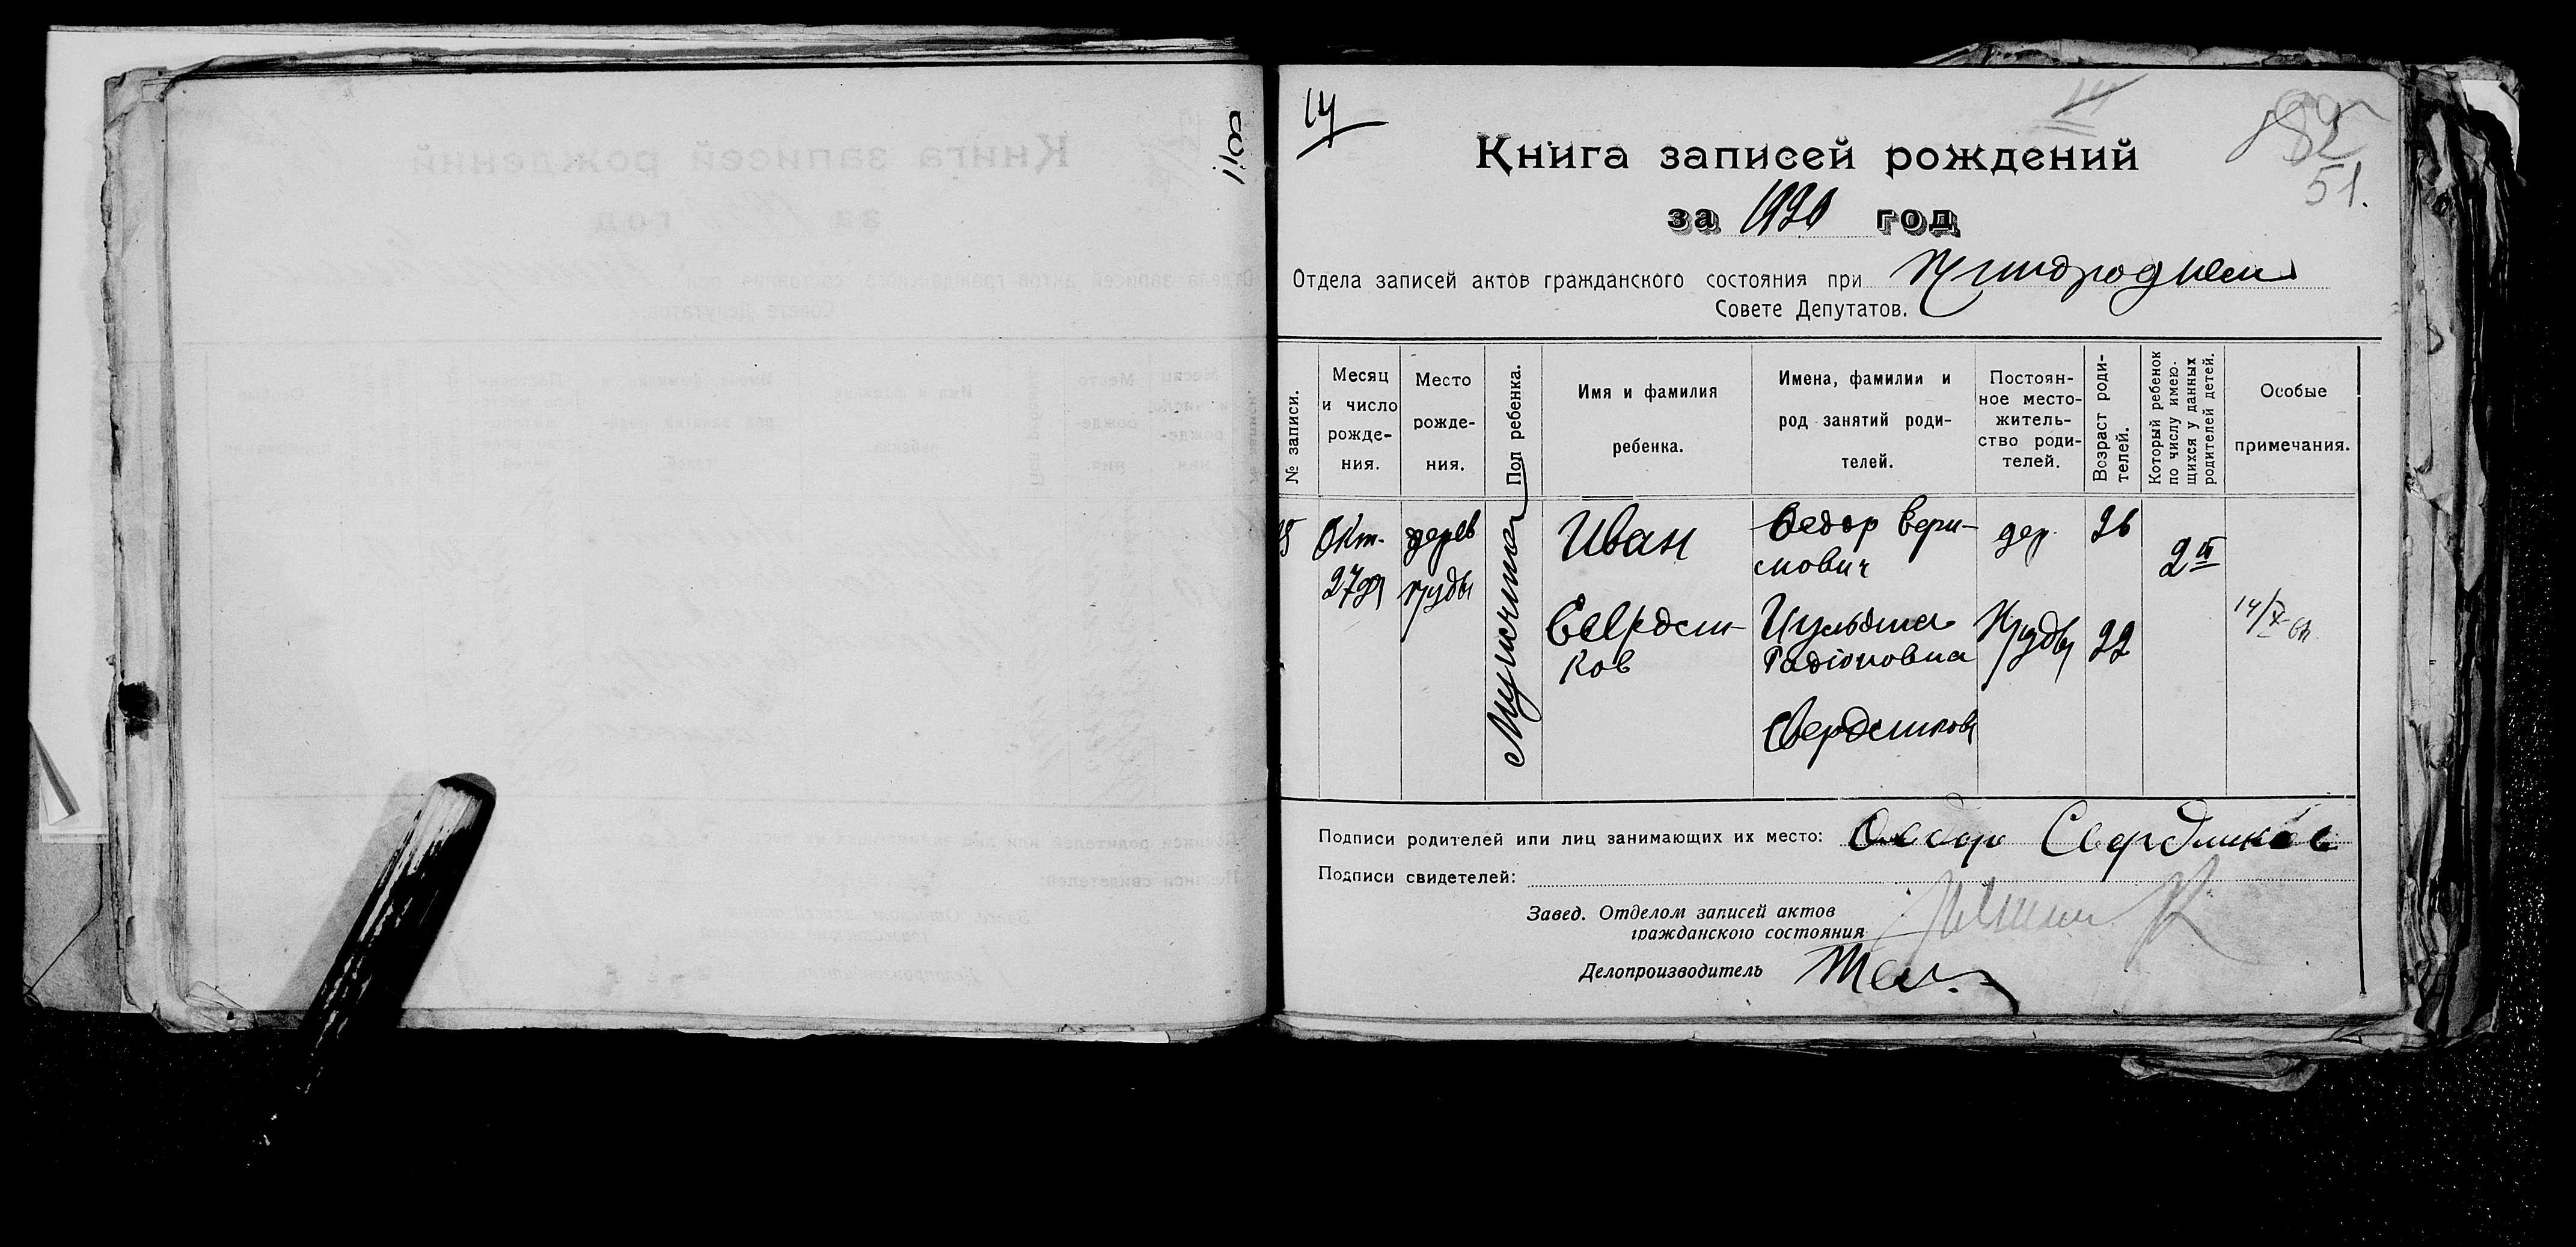 14
51.
Книга записей рождений
за 1920 год
Отдела записей актов гражданского состояния при
Совете Депутатов.
№ записи.
Месяц и число рожде-ния.
Место рожде-ния.
Пол ребенка.
Имя и фамилия ребенка.
Имена, фамилии и род занятий роди-телей.
Постоян-ное место-житель-ство роди-телей.
Возраст роди-телей.
Который ребенок по числу имею-щихся у данных родителей детей.
Особые примечания.
Окт.
27
дерев
Пруды
Мужчина
Иван
Свердли-
ков
Федор
мович
Радіоновна
Свердликовы
дер.
Пруды
26
22
2й
Подписи родителей или лиц занимающих их место: Федор Свердликов
Подписи свидетелей:
Завед. Отделом записей актов
гражданского состояния
Делопроизводитель